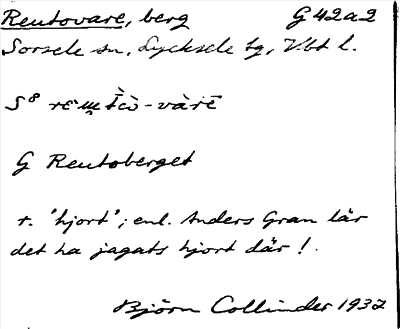 Reutovare, berg G 42a2
Sorsele sn, Lycksele tg, Vbt l.
S⁸ -vàrē
G Reutoberget
r. 'hjort'; enl. Anders Gran lär
det ha jagats hjort där!
Björn Collinder 1932